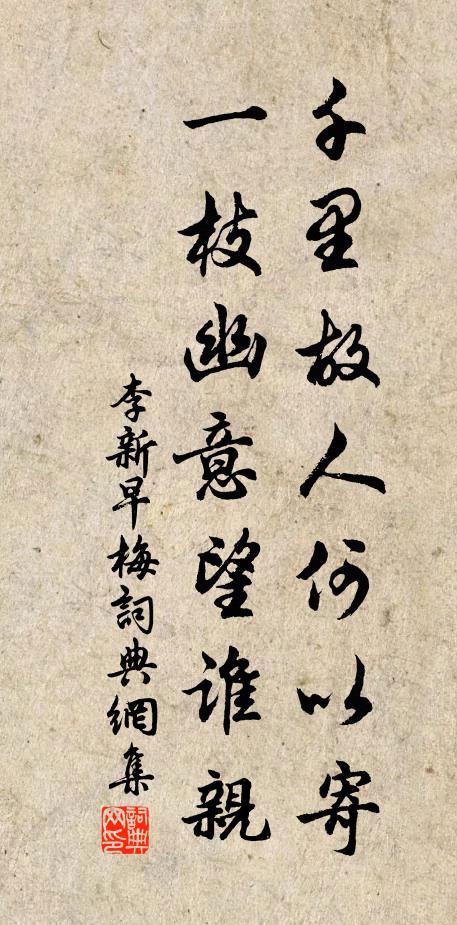 千里故人何以寄
一枝幽意望誰親
李新早梅詞典網集
詞典網印